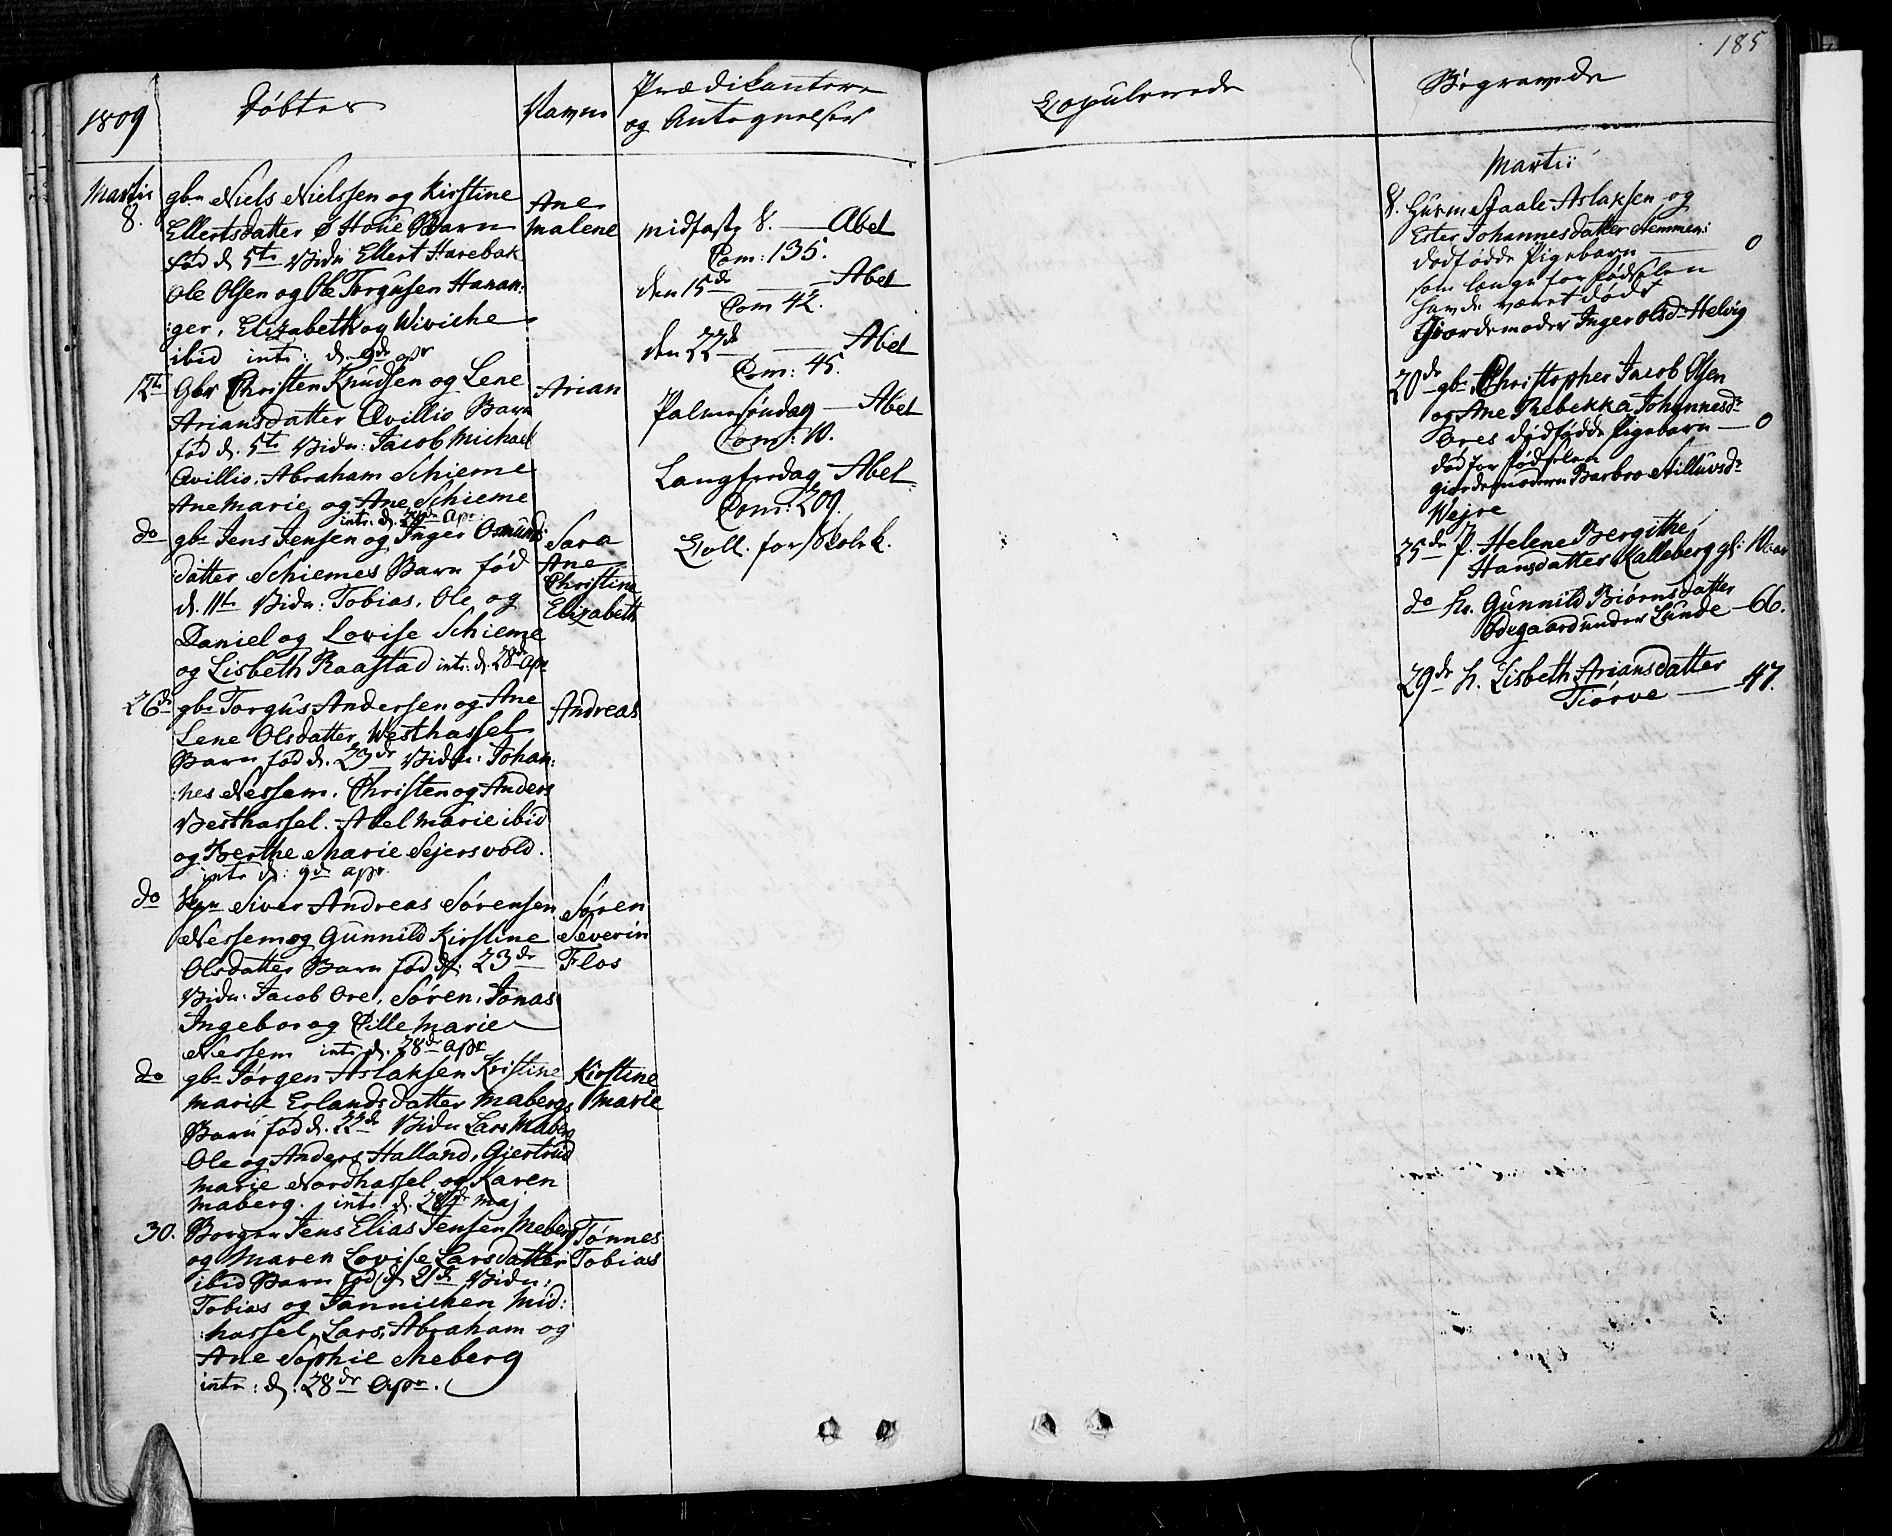 185
1809
Døbte
Navn
Prædikantere
og Antegnelser
Copulerede
Begravede
Martii
8.
gbr Niels Nielssen og Kirstine
Ellertsdatter Ø Houe Barn
fød d. 5te Vidn: Ellert Harebak
Ole Olsen og Ole Torgusen Hanan:
:ger, Elizabeth og Wiviche
ibid intr: d. 9de apr
Ane
Malene
12te
Gbr Christen Knudsen og Lene
Ariansdatter Qvillio Barn
fød d. 5te Vidn: Jacob Michael
Qvillio, Abraham Schieme
Ane Marie og Ane Schieme
intr: d. 28de Apr:
Arian
do
gbr Jens Jensen og Inger Osmunds
datter Schiemes Barn fød
d. 11te Vidn: Tobias, Ole og
Daniel og Lovise Schieme
og Lisbeth Raastad intr: d. 28de Apr
Sara
Ane
Christine
Elizabeth
26de
gbr Torgus Andersen og Ane
Lene Olsdatter Westhassel
Barn fød d. 23de Vidn: Johan:
:nes Nessem, Christen og Anders
Vesthassel. Abel Marie ibid
og Berthe Marie Sejersvold.
intr d: 9de apr.
Andreas
do
Siver Andreas Sørensen
Nessem og Gunnild Kirstine
Olsdatter Barn fød d: 23de
Vidn: Jacob Ore, Søren, Jonas
Ingebor og Cille Marie
Nessem intr d. 28de Apr
Søren
Severin
Flos
do
gbr Jørgen Aslaksen Kristine
Marie Erlandsdatter Mabergs
Barn fød d. 22de Vidn Lars Maberg
Ole og Anders Halland, Gjertrud
Marie Nordhassel og Karen
Maberg. intr: d. 28de Maj
Kirstine
Marie
30.
Jens Elias Jensen Meberg
og Maren Lovise Larsdatter
ibid Barn fød d. 21de Vidn:
Tobias og Tannichen Mid:
:hassel, Lars, Abraham og
Ane Sophie Meberg
intr: d: 28de Apr.
Tønnes
Tobias
Midfaste 8. — Abel
Com: 135.
den 15de — Abel
Com 42.
den 22de — Abel
Com: 45.
Palmesøndag — Abel
Com: 10.
Langfredag Abel
Com: 209.
Coll. for Skolek.
Martii
8. Huusm Faale Aslaksen og
Ester Johannesdatter Nemmen:
dødfødde Pigebarn — 0
som længe for fødselen
havde været dødt
Giordemoder Inger Olsdr Helvig
20de gbr Christopher Jacob Olsen
og Ane Rebekka Johannesdr
Ores dødfødde Pigebarn — 0
død for fødselen
giordemoderen Barbro
Wejre
25de P. Helene Bergithe
Hansdatter Kalleberg gl: 10 aar
do Kr. Gunnild Biørnsdatter
Ødegaard under Lunde — 66.
29de K. Lisbeth Ariansdatter
Tiørve — 47.